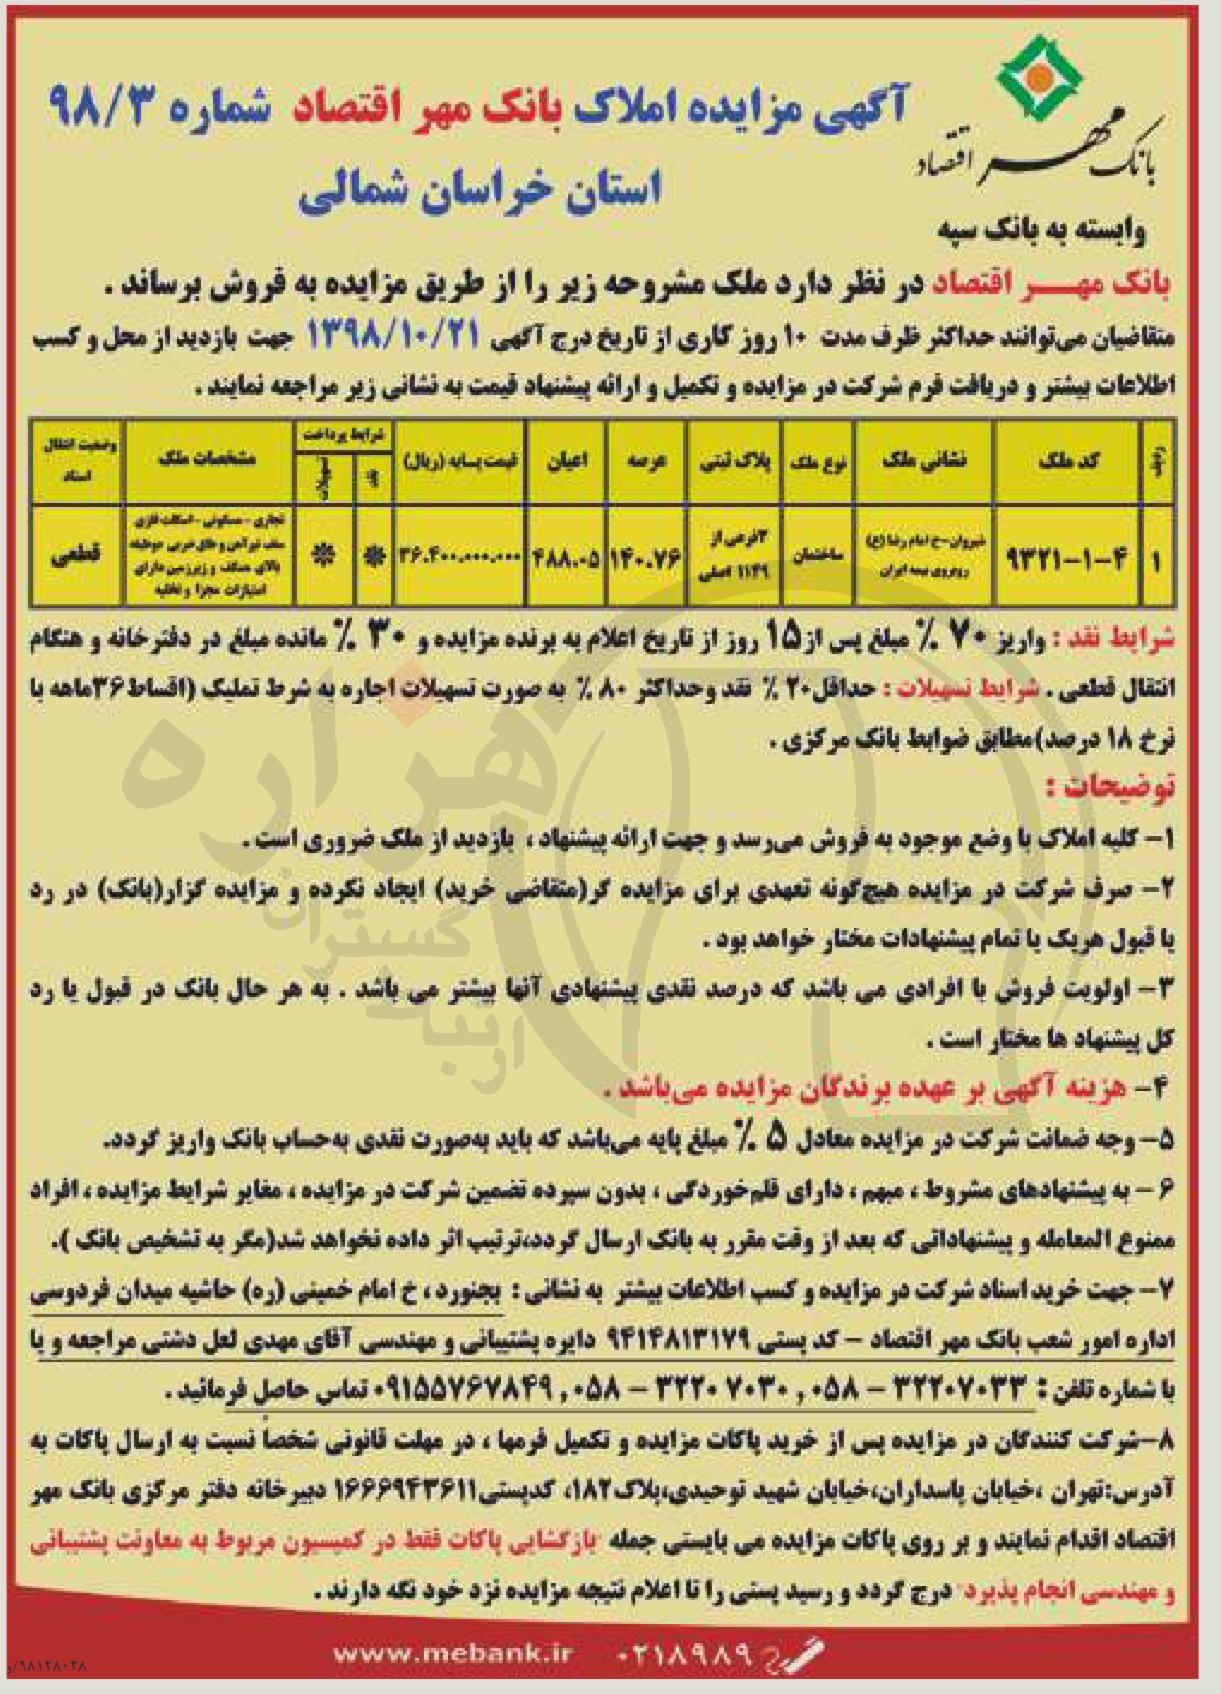 آگهی مزایده املاک بانک مهر اقتصاد شماره ۹۸/۳
استان خراسان شمالی
بانک مهر اقتصاد
وابسته به بانک سپه
بانک مهــر اقتصاد در نظر دارد ملک مشروحه زیر را از طریق مزایده به فروش برساند .
متقاضیان می‌توانند حداکثر ظرف مدت ۱۰ روز کاری از تاریخ درج آگهی ۱۳۹۸/۱۰/۲۱ جهت بازدید از محل و کسب
اطلاعات بیشتر و دریافت فرم شرکت در مزایده و تکمیل و ارائه پیشنهاد قیمت به نشانی زیر مراجعه نمایند .
ردیف
کد ملک
نشانی ملک
نوع ملک
پلاک ثبتی
عرصه
اعیان
قیمت پایه (ریال)
شرایط پرداخت
نقد
تسهیلات
مشخصات ملک
وضعیت انتقال
اسناد
۱
۹۳۲۱-۱-۴
شیروان-خ امام رضا (ع)
روبروی بیمه ایران
ساختمان
۳فرعی از
۱۱۴۹ اصلی
۱۴۰.۷۶
۴۸۸.۰۵
۳۶.۴۰۰.۰۰۰.۰۰۰
تجاری - مسکونی - اسکلت فلزی
سقف تیرآهن و طاق ضربی دوطبقه
بالای همکف و زیرزمین دارای
امتیازات مجزا و تخلیه
قطعی
شرایط نقد : واریز ۷۰ % مبلغ پس از ۱۵ روز از تاریخ اعلام به برنده مزایده و ۳۰ % مانده مبلغ در دفترخانه و هنگام
انتقال قطعی . شرایط تسهیلات : حداقل ۲۰ % نقد وحداکثر ۸۰ % به صورت تسهیلات اجاره به شرط تملیک (اقساط ۳۶ماهه با
نرخ ۱۸ درصد)مطابق ضوابط بانک مرکزی .
توضیحات :
۱- کلیه املاک با وضع موجود به فروش می‌رسد و جهت ارائه پیشنهاد ، بازدید از ملک ضروری است .
۲- صرف شرکت در مزایده هیچ‌گونه تعهدی برای مزایده گر(متقاضی خرید) ایجاد نکرده و مزایده گزار(بانک) در رد
یا قبول هریک یا تمام پیشنهادات مختار خواهد بود .
۳- اولویت فروش با افرادی می باشد که درصد نقدی پیشنهادی آنها بیشتر می باشد . به هر حال بانک در قبول یا رد
کل پیشنهاد ها مختار است .
۴- هزینه آگهی بر عهده برندگان مزایده می‌باشد .
۵- وجه ضمانت شرکت در مزایده معادل ۵ % مبلغ پایه می‌باشد که باید به‌صورت نقدی به‌حساب بانک واریز گردد.
۶ - به پیشنهادهای مشروط ، مبهم ، دارای قلم‌خوردگی ، بدون سپرده تضمین شرکت در مزایده ، مغایر شرایط مزایده ، افراد
ممنوع المعامله و پیشنهاداتی که بعد از وقت مقرر به بانک ارسال گردد،ترتیب اثر داده نخواهد شد(مگر به تشخیص بانک ).
۷- جهت خرید اسناد شرکت در مزایده و کسب اطلاعات بیشتر به نشانی : بجنورد ، خ امام خمینی (ره) حاشیه میدان فردوسی
اداره امور شعب بانک مهر اقتصاد - کد پستی ۹۴۱۴۸۱۳۱۷۹ دایره پشتیبانی و مهندسی آقای مهدی لعل دشتی مراجعه و یا
با شماره تلفن : ۳۲۲۰۷۰۳۳ - ۰۵۸ , ۳۲۲۰۷۰۳۰ - ۰۵۸ , ۰۹۱۵۵۷۶۷۸۴۹ تماس حاصل فرمائید .
۸-شرکت کنندگان در مزایده پس از خرید پاکات مزایده و تکمیل فرمها ، در مهلت قانونی شخصاً نسبت به ارسال پاکات به
آدرس:تهران ،خیابان پاسداران،خیابان شهید توحیدی،پلاک۱۸۲، کدپستی۱۶۶۶۹۴۳۶۱۱ دبیرخانه دفتر مرکزی بانک مهر
اقتصاد اقدام نمایند و بر روی پاکات مزایده می بایستی جمله "بازگشایی پاکات فقط در کمیسیون مربوط به معاونت پشتیبانی
و مهندسی انجام پذیرد" درج گردد و رسید پستی را تا اعلام نتیجه مزایده نزد خود نگه دارند .
www.mebank.ir ۰۲۱۸۹۸۹
۹۸۱۲۸۰۲۸/
هزاره